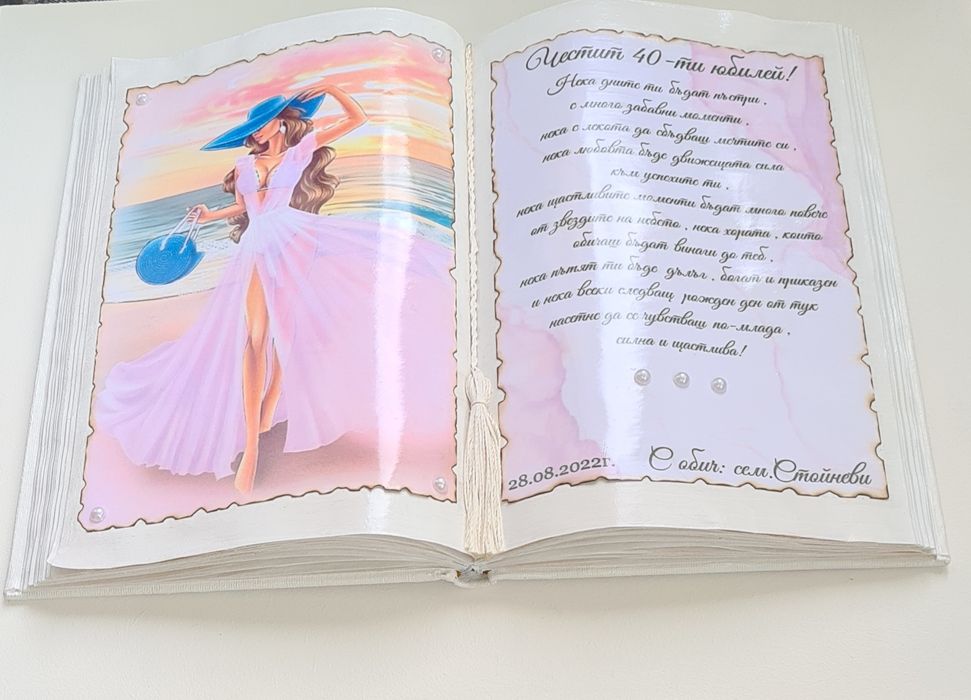 Честит 40-ти юбилей!
Нека дните ти бъдат пъстри,
с много забавни моменти,
нека с лекота да сбъдваш мечтите си,
нека любовта бъде движещата сила
към успехите ти,
нека щастливите моменти бъдат много повече
от звездите на небето, нека хората, които
обичаш бъдат винаги до теб,
нека пътят ти бъде дълъг, богат и приказен
и нека всеки следващ рожден ден от тук
насетне да се чувстваш по-млада,
силна и щастлива!
28.08.2022г.
С обич: сем.Стойневи